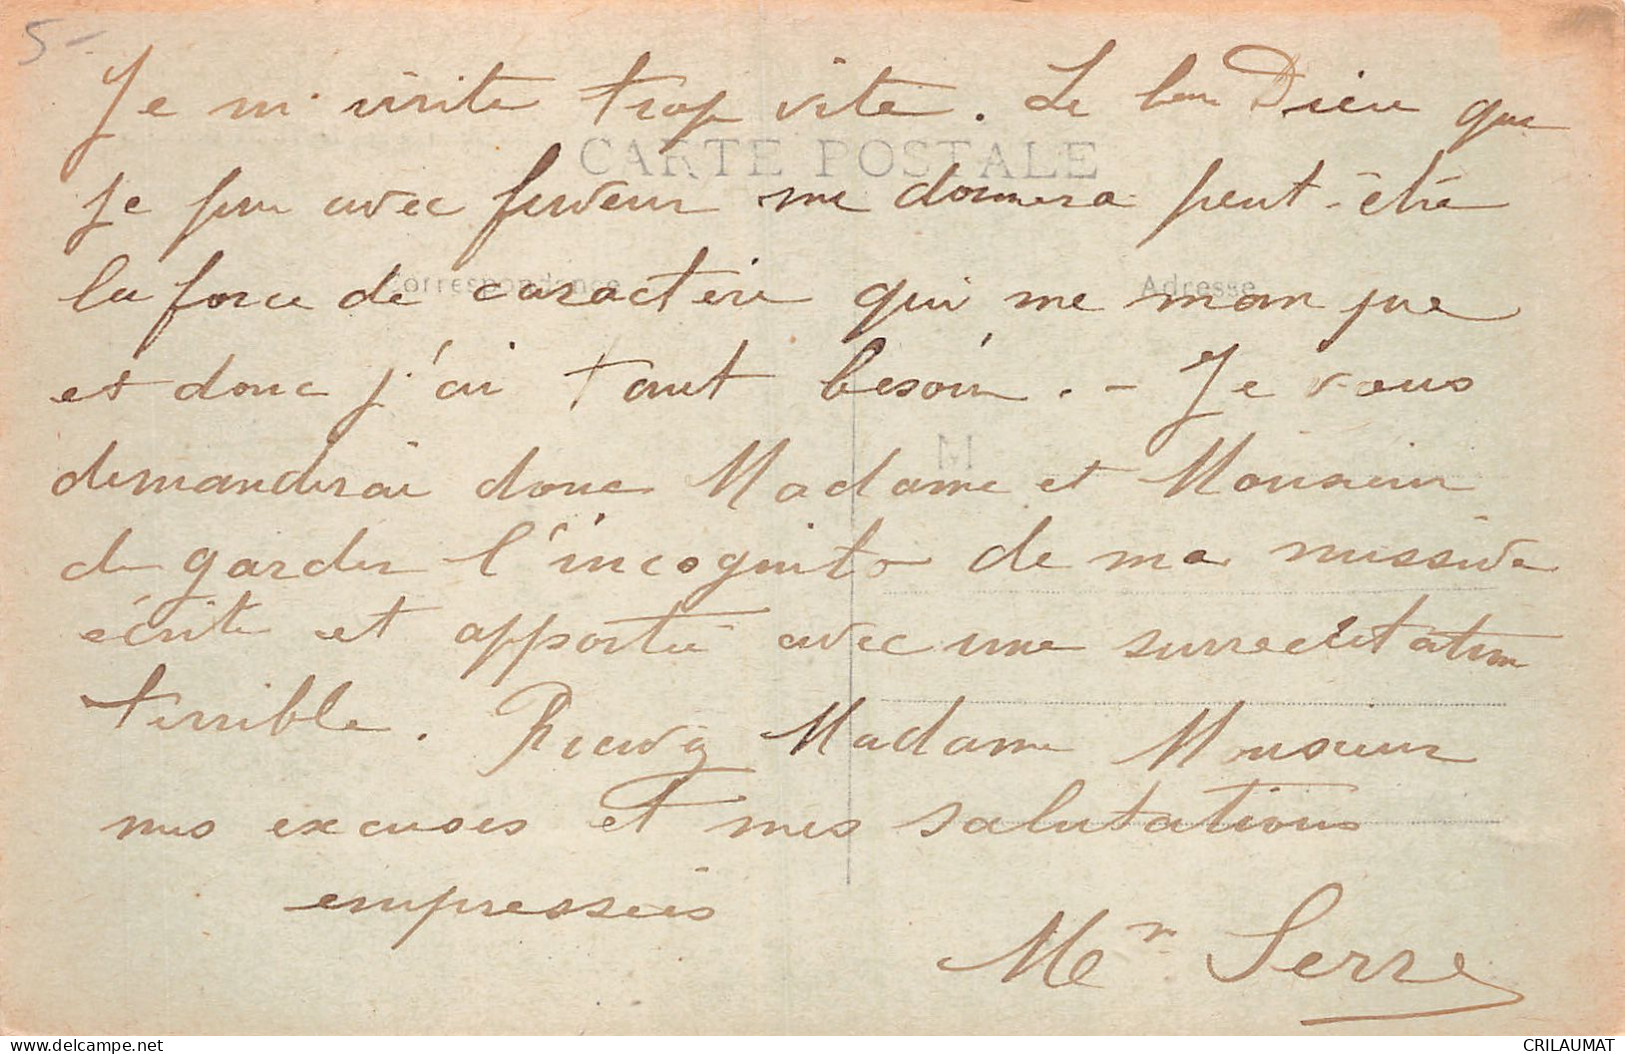 5-
Je m'irrite trop vite. Le bon Dieu que
CARTE POSTALE
je prie avec ferveur me donnera peut-être
Correspondance
Adresse
la force de caractère qui me manque
et donc j'ai tant besoin. - Je vous
M
demanderai donc Madame et Monsieur
de garder l'incognito de ma missive
écrite et apportée avec une surrecitation
terrible. Recevez Madame Monsieur
mes excuses et mes salutations
empressées
Serre
www.delcampe.net
CRILAUMAT